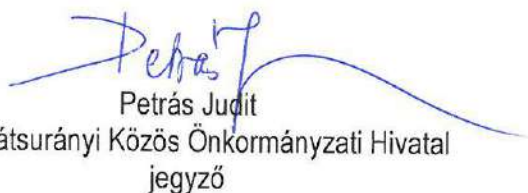 Petrás J
Petrás Judit
átsurányi Közös Önkormányzati Hivatal
jegyző